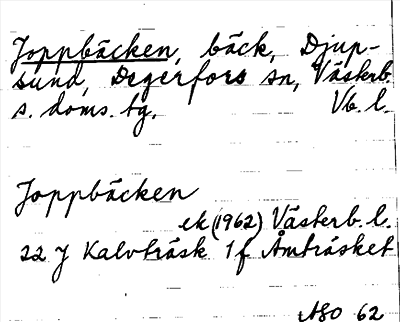 Joppbäcken, bäck, Djup-
sund, Degerfors sn, Västerb.
s. doms. tg, Vb. l.
Joppbäcken
ek (1962) Västerb. l.
22 J Kalvträsk 1 f Åmträsket
ASO 62